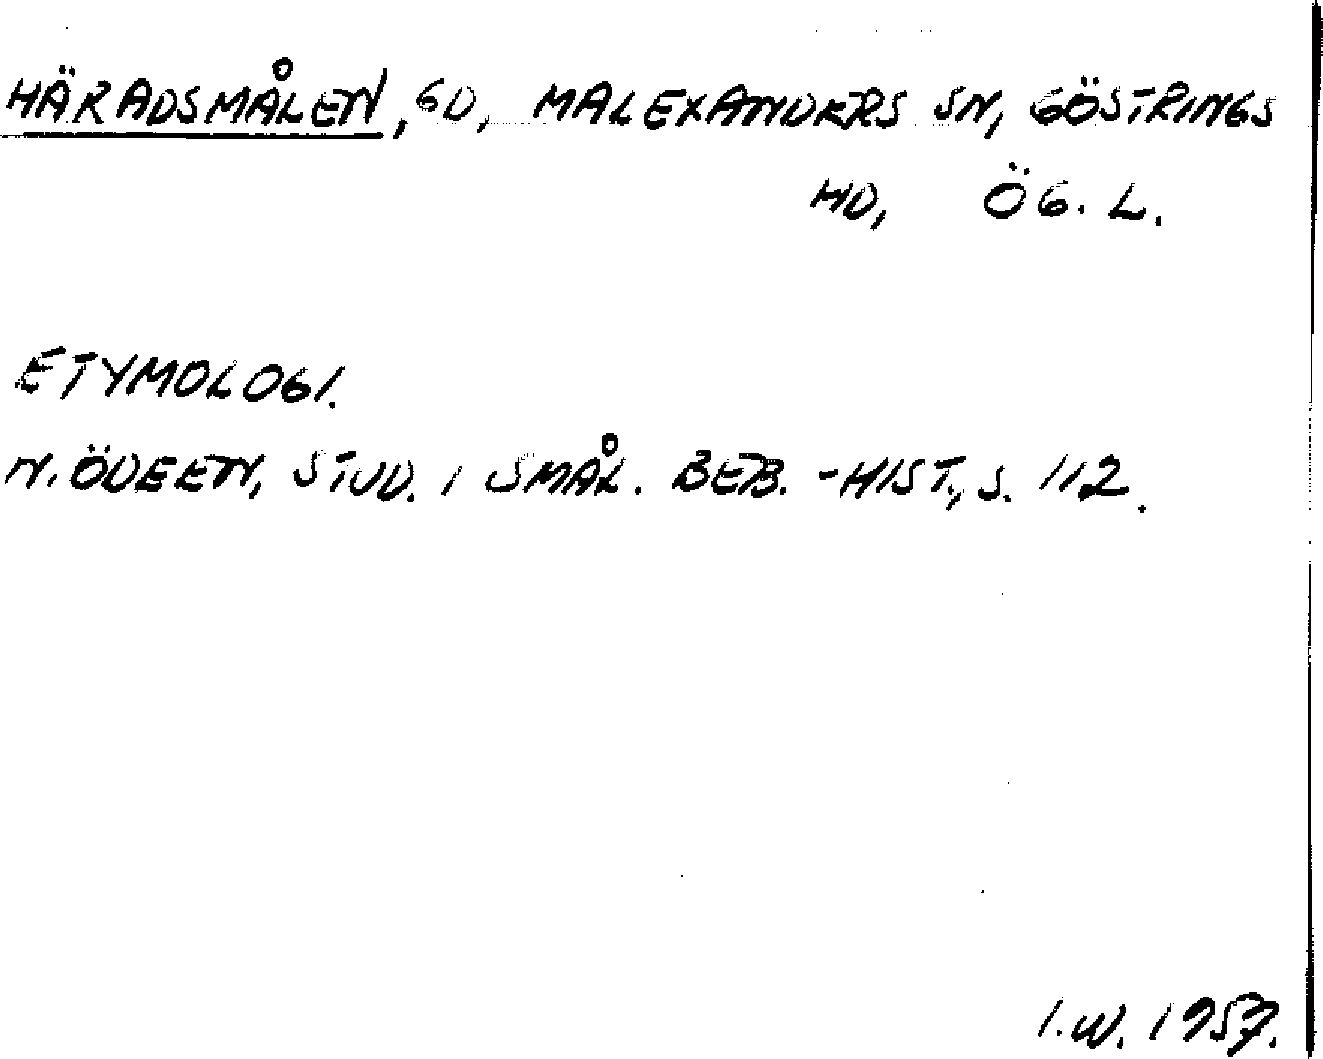 HÄRADSMÅLEN, GD, MALEXANDERS SN, GÖSTRINGS
HD, ÖG. L.
ETYMOLOGI.
N. ÖDEEN, STUD. I SMÅL. BEB.-HIST., S. 112.
I.W. 1957.